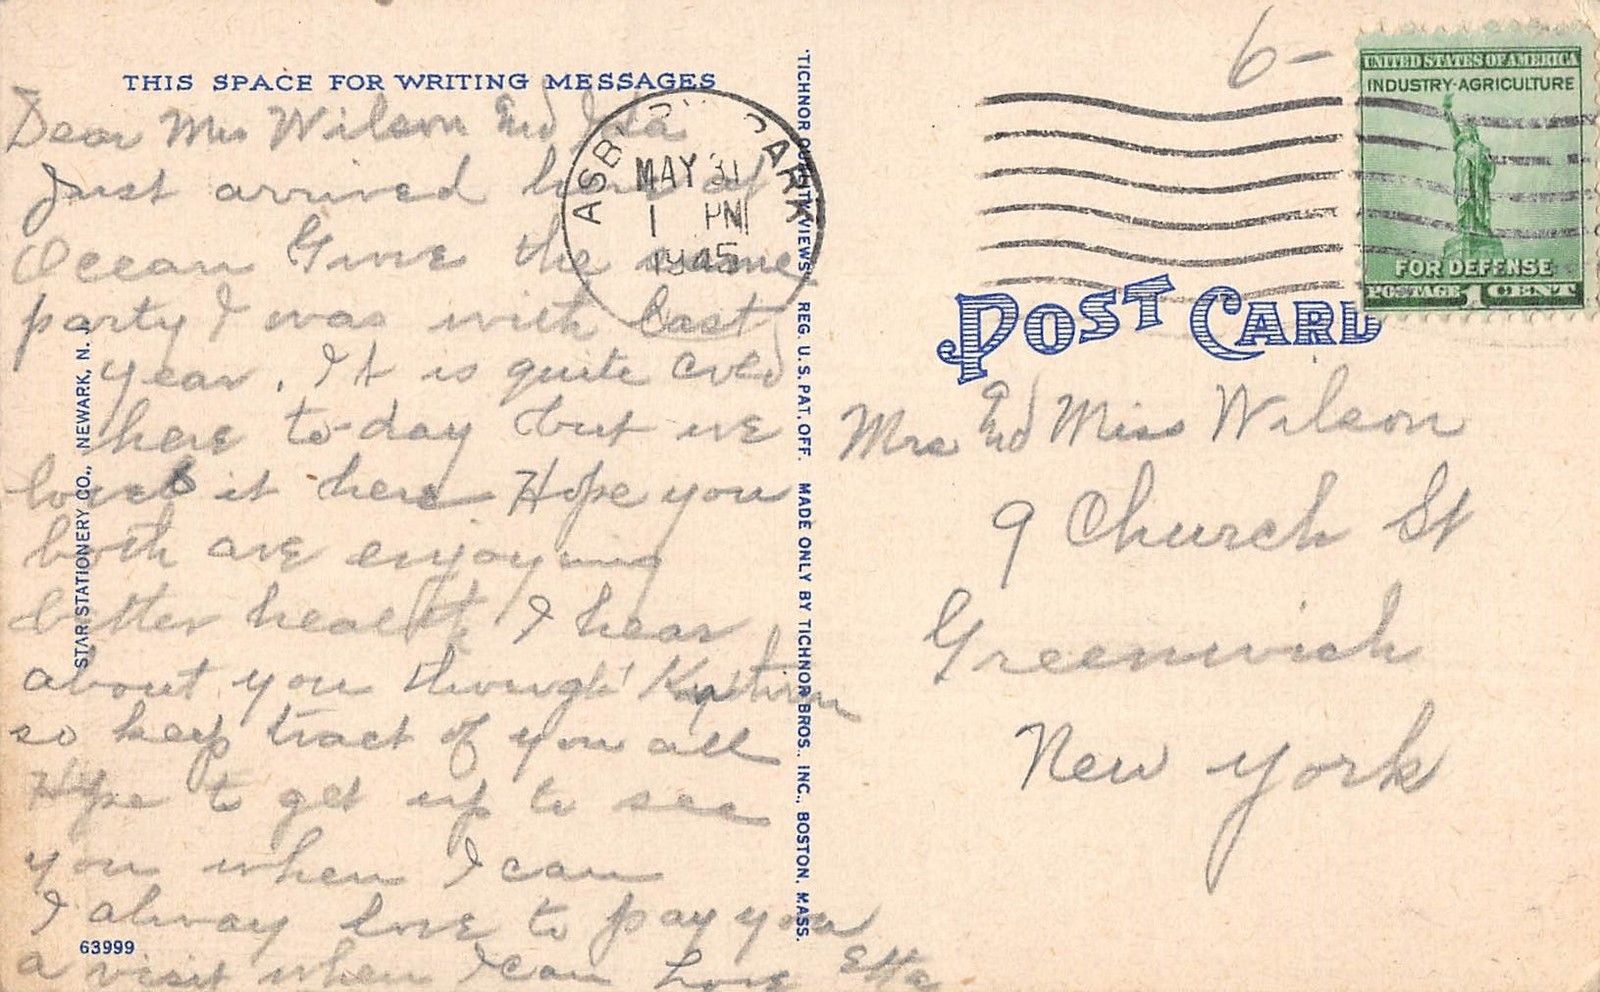 THIS SPACE FOR WRITING MESSAGES
Dear Mrs Wilson and Ida
Just arrived here at
Ocean Grove the same
party I was with last
year. It is quite cold
here to-day but we
love it here Hope you
both are enjoying
better health, I hear
about you through
so keep tract of you all
Hope to get up to see
you when I can
I alway love to pay you
a visit when I can Love Etta
63999
STAR STATIONERY CO., NEWARK, N. J.
"TICHNOR QUALITY VIEWS" REG. U.S. PAT. OFF. MADE ONLY BY TICHNOR BROS., INC., BOSTON, MASS.
ASB PARK
MAY 31
1 PM
1945
6-
UNITED STATES OF AMERICA
INDUSTRY-AGRICULTURE
FOR DEFENSE
POSTAGE 1 CENT
POST CARD
Mrs and Miss Wilson
9 Church St
Greenwich
New York